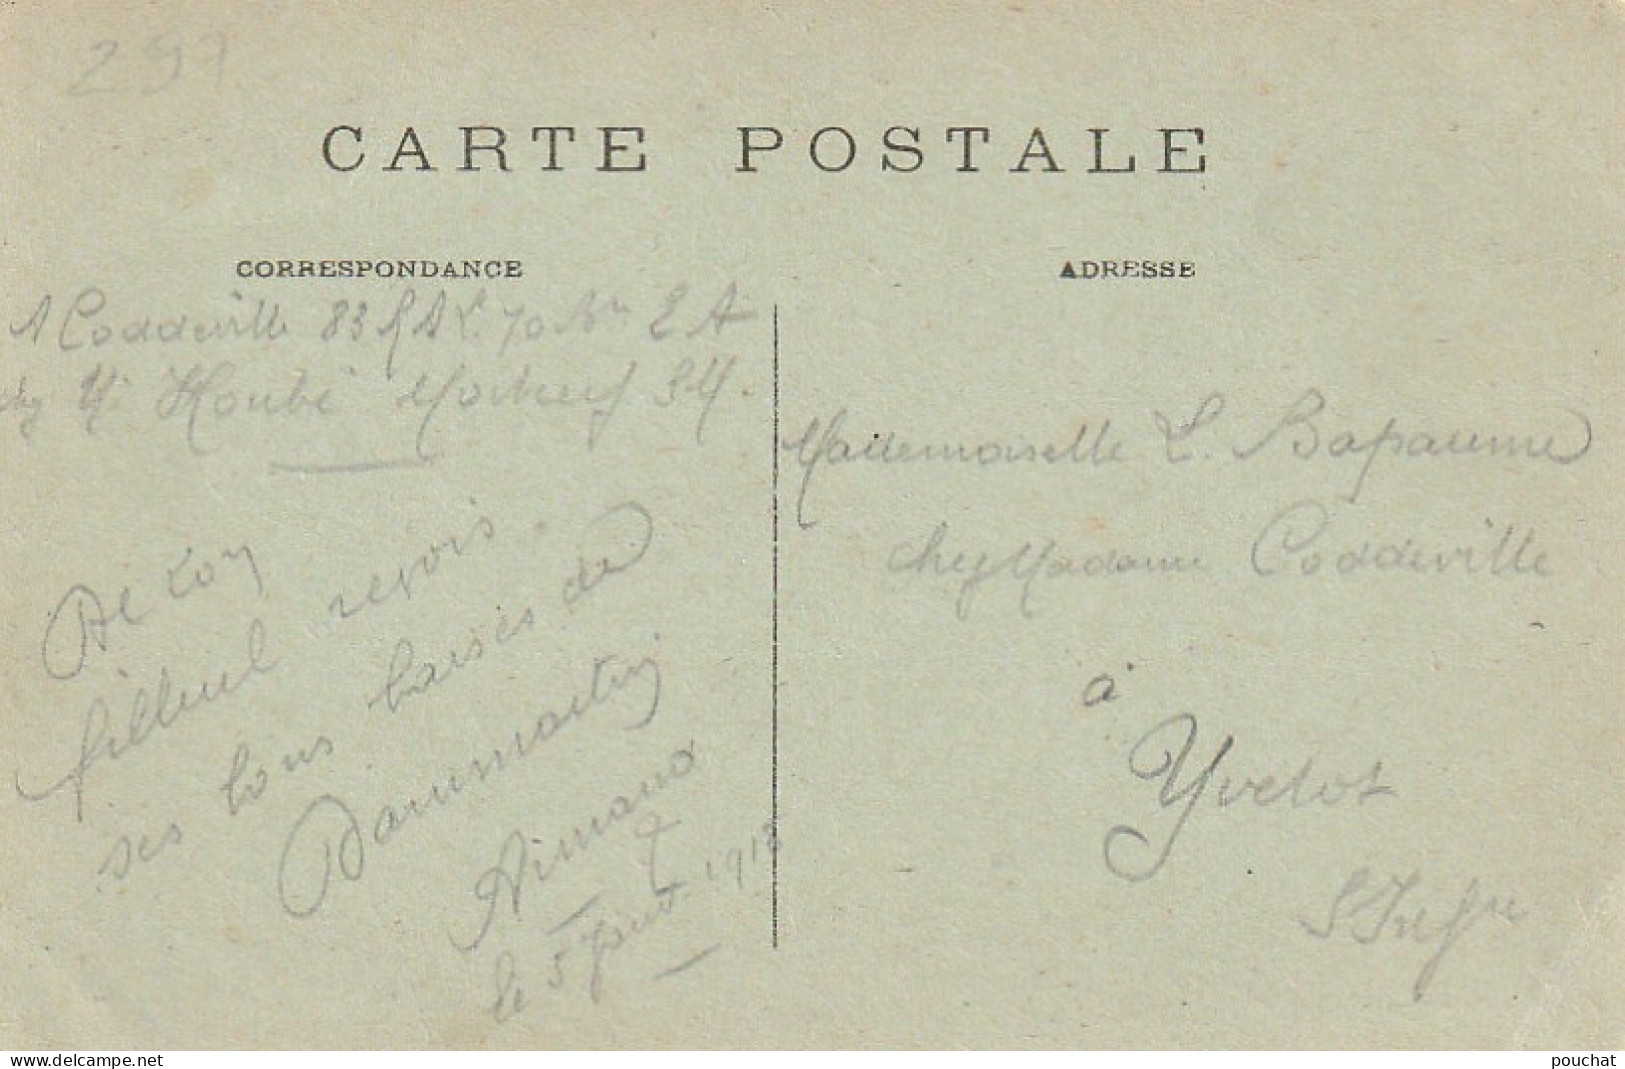 297
CARTE POSTALE
CORRESPONDANCE
ADRESSE
A Coddeville 83 RAL 70 Bie E A
chez Mr Houbé S M.
De ton
filleul reçois
ses bons baises de
Dammartin
Armand
le 5 1918
Mademoiselle L. Bapaume
chez Madame Coddeville
à
Yvetot
S Infre
www.delcampe.net
pouchat